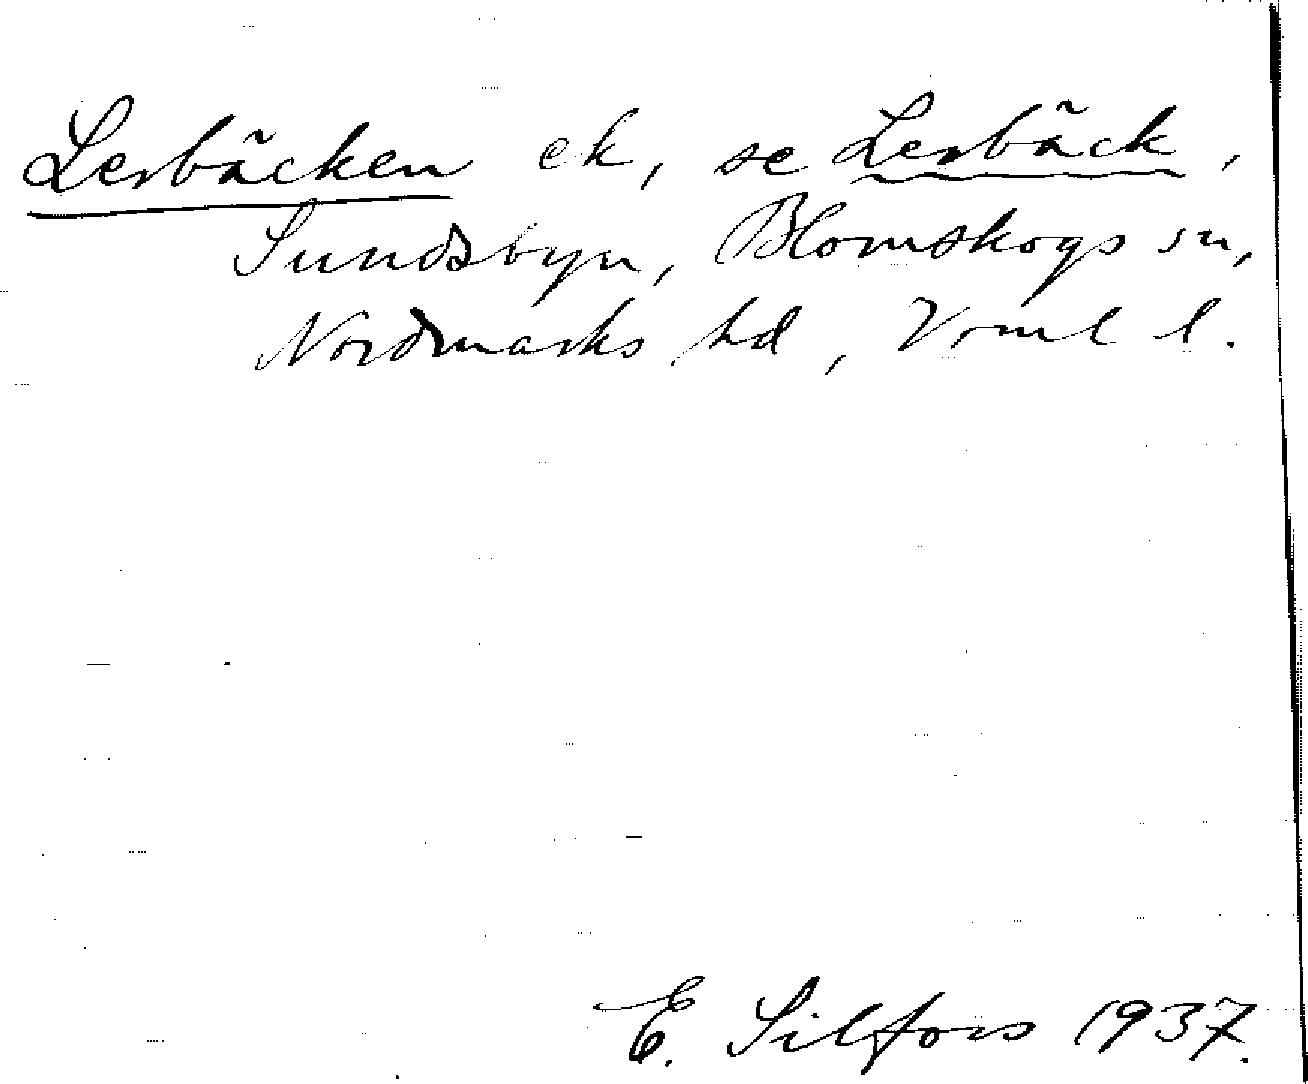 Lerbäcken ek, se Lerbäck,
Sundsbyn, Blomskogs sn,
Nordmarks hd, Vrml l.
E. Silfors 1937.